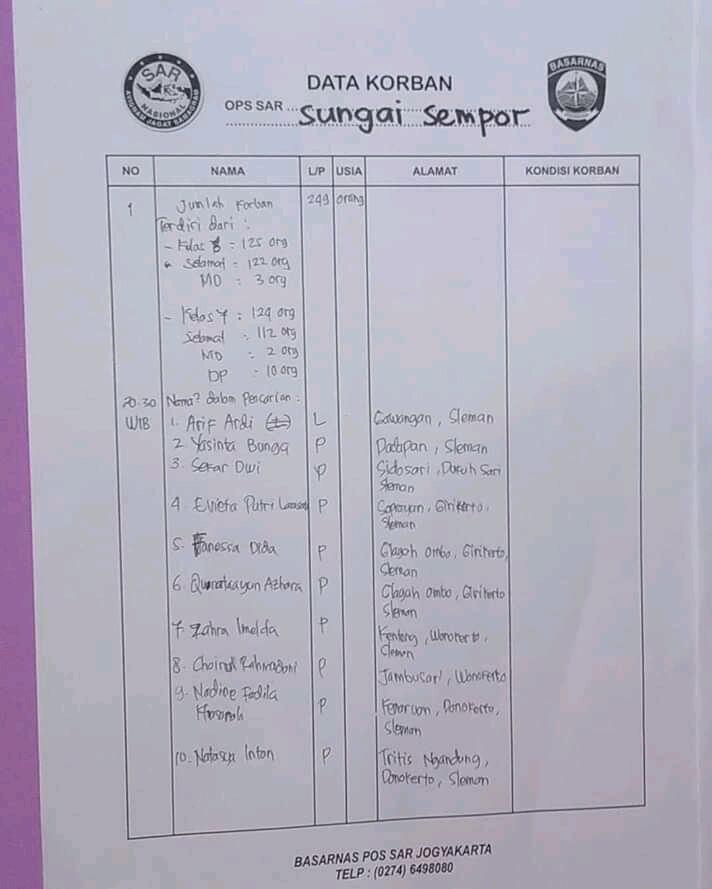 SAR
NASIONAL
AVIGNAM JAGAT SAMAGRAM
BASARNAS
DATA KORBAN
OPS SAR ... Sungai Sempor
NO NAMA L/P USIA ALAMAT KONDISI KORBAN
1 Jumlah Korban 249 orang
Terdiri dari :
- Kelas 8 = 125 org
Selamat = 122 org
MD = 3 org
- Kelas 7 : 124 org
Selamat : 112 org
MD = 2 org
DP = 10 org
20.30 WIB Nama² dalam Pencarian :
1. Arif Ardi L Gawangan, Sleman
2. Yasinta Bunga P Dadapan, Sleman
3. Sekar Dwi P Sidosari, Sari
Sleman
4. Evieta Putri P Girikerto,
Sleman
5. Vanessa Dida P Glagah Ombo, Girikerto,
Sleman
6. Azhara P Glagah Ombo, Girikerto
Sleman
7. Zahra Imelda P Kenteng, Wonokerto,
Sleman
8. P Jambusari, Wonokerto
9. Nadine Fadila P Donokerto,
Sleman
10. Natasya Intan P Tritis Ngandong,
Donokerto, Sleman
BASARNAS POS SAR JOGYAKARTA
TELP : (0274) 6498080